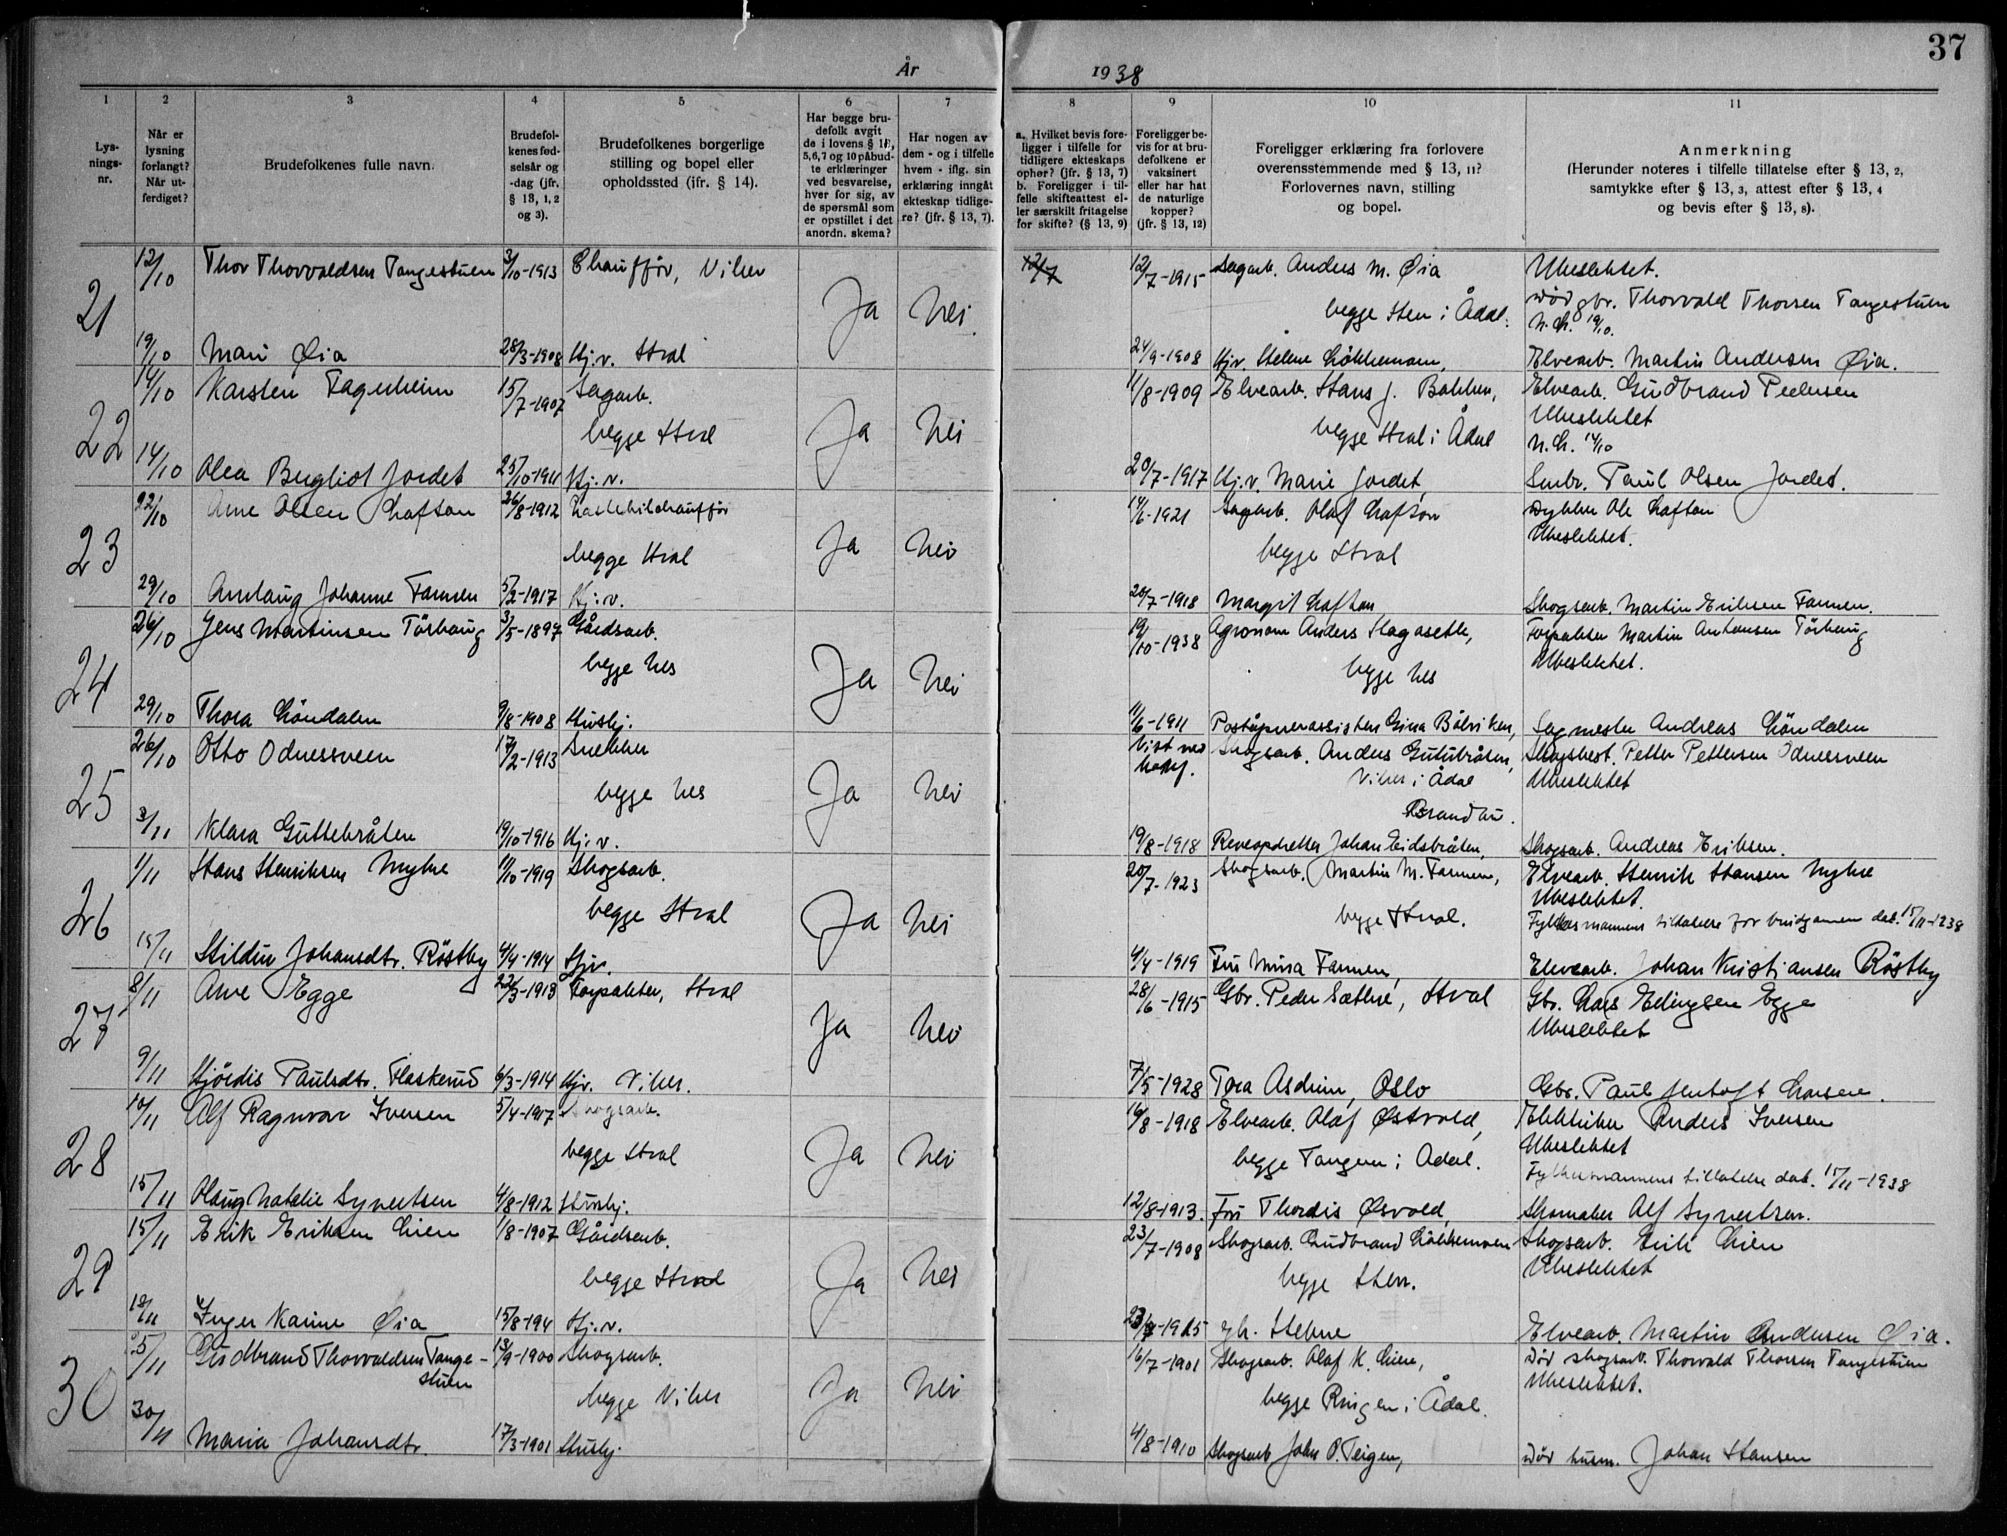 37
År 1938
1 2 3 4 5 6 7 8 9 10 11
Lysningsnr.
Når er lysning forlangt? Når utferdiget?
Brudefolkenes fulle navn.
Brudefolkenes fødselsår og -dag (jfr. § 13, 1, 2 og 3).
Brudefolkenes borgerlige stilling og bopel eller opholdssted (jfr. § 14).
Har begge brudefolk avgit de i lovens § 1f, 5, 6, 7 og 10 påbudte erklæringer ved besvarelse, hver for sig, av de spørsmål som er opstillet i det anordn. skema?
Har nogen av dem - og i tilfelle hvem - iflg. sin erklæring inngått ekteskap tidligere? (jfr. § 13, 7).
a. Hvilket bevis foreligger i tilfelle for tidligere ekteskaps ophør? (jfr. § 13, 7) b. Foreligger i tilfelle skifteattest eller særskilt fritagelse for skifte? (§ 13, 9)
Foreligger bevis for at brudefolkene er vaksinert eller har hat de naturlige kopper? (jfr. § 13, 12)
Foreligger erklæring fra forlovere overensstemmende med § 13, 11? Forlovernes navn, stilling og bopel.
Anmerkning (Herunder noteres i tilfelle tillatelse efter § 13, 2, samtykke efter § 13, 3, attest efter § 13, 4 og bevis efter § 13, 8).
21 12/10 Thor Thorvaldsen Tangestuen 3/10-1913 Chauffør, Viker Ja Nei 12/7 12/7-1915 Sagarb. Anders M. Øia Ubeslektet.
begge Sten i Ådal. Død gbr. Thorvald Thorsen Tangestuen
N.L. 19/10.
19/10 Mari Øia 28/3-1908 Hj.v. Hval 24/9-1908 Hjv. Helene Løkkemoen, Elvearb. Martin Andersen Øia.
22 14/10 Karsten Fagerheim 15/7-1907 Sagarb. Ja Nei 11/8-1909 Elvearb. Hans J. Bakken, Elvearb. Gudbrand Pedersen
begge Hval begge Hval i Ådal Ubeslektet
N.L. 14/10
14/10 Olea Bergliot Jordet 25/10-1911 Hj.v. 20/7-1917 Hj.v. Marie Jordet, Smbr. Paul Olsen Jordet.
23 22/10 Arne Olsen Lofton 26/8-1912 Lastebilchauffør Ja Nei 14/6-1921 Sagarb. Olaf Lofton Dykker Ole Lofton
begge Hval begge Hval Ubeslektet.
29/10 Anlaug Johanne Farmen 5/2-1917 Hj.v. 20/7-1918 Margit Lofton, Skogsarb. Martin Eriksen Farmen.
24 26/10 Jens Martinsen Tørhaug 3/5-1897 Gårdsarb. Ja Nei 19/10-1938 Agronom Anders Hagasette, Forpakter Martin Antonsen Tørhaug
begge Nes begge Nes Ubeslektet.
29/10 Thora Løndalen 9/8-1908 Hushj. 11/6-1911 Poståpnerassistent Gina Bålviken, Sagmester Andreas Løndalen
25 26/10 Otto Odnessveen 17/2-1913 Snekker Ja Nei Vist ved konf. Skogsarb. Anders Guttubråten, Skogsbest. Petter Pettersen Odnessveen
begge Nes Viker i Ådal Ubeslektet
Brandbu.
3/11 Klara Guttebråten 19/10-1916 Hj.v. 19/8-1918 Reveopdretter Johan Eidsbråten, Skogsarb. Andreas Eriksen.
26 1/11 Hans Henriksen Myhre 11/10-1919 Skogsarb. Ja Nei 20/7-1923 Skogsarb. Martin M. Farmen, Elvearb. Henrik Hansen Myhre
begge Hval begge Hval. Ubeslektet.
Fylkesmannens tillatelse for brudgommen dat. 15/11-1938
15/11 Hildur Johansdtr. Røstby 4/4-1914 Hjv. 4/4-1919 Fru Mina Farmen, Elvearb. Johan Kristiansen Røstby
27 8/11 Arve Egge 22/3-1913 Forpakter, Hval Ja Nei 28/6-1915 Gbr. Peder Sæthre, Hval Gbr. Lars Erlingsen Egge
Ubeslektet
9/11 Hjørdis Paulsdtr. Flaskerud 6/3-1914 Hjv. Viker. 7/5-1928 Tora Asdrim, Oslo Gbr. Paul Hertoft Larsen.
28 10/11 Alf Ragnvar Iversen 5/4-1917 Skogsarb. Ja Nei 16/8-1918 Elvearb. Olaf Østvold, Elektriker Anders Iversen
begge Hval begge Tangen i Ådal. Ubeslektet
Fylkesmannens tillatelse dat. 15/11-1938
15/11 Olaug Natalie Syvertsen 4/8-1912 Hushj. 12/8-1913. Fru Thordis Øsvold, Skomaker Alf Syvertsen.
29 15/11 Erik Eriksen Lien 1/8-1907 Gårdsarb. Ja Nei 23/7-1908 Skogsarb. Gudbrand Løkkemoen Skogsarb. Erik Lien
begge Hval begge Sten. Ubeslektet
18/11 Inger Karine Øia 15/8-194 Hj.v. 23/7-1915 Elvearb. Martin Andersen Øia.
30 25/11 Gudbrand Thorvaldsen Tange- 13/9-1900 Skogsarb. Ja Nei 16/7-1901 Skogsarb. Olaf K. Liene, Død skogsarb. Thorvald Thorsen Tangestuen
stuen begge Viker begge Ringen i Ådal. Ubeslektet.
30/11 Maria Johansdtr. 17/3-1901 Hushj. 4/8-1910 Skogsarb John P. Teigen, Død husm. Johan Hansen